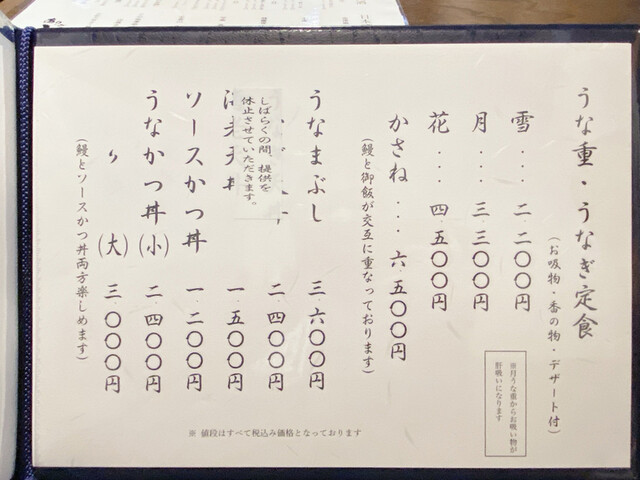 うな重・うなぎ定食
(お吸物・香の物・デザート付)
雪....二.二〇〇円
月....三.三〇〇円
花....四.五〇〇円
かさね...六.五〇〇円
(鰻と御飯が交互に重なっております)
※月うな重からお吸い物が
肝吸いになります
うなまぶし 三.六〇〇円
二.四〇〇円
しばらくの間、提供を
休止させていただきます。
一.五〇〇円
ソースかつ丼 一.二〇〇円
うなかつ丼(小) 二.四〇〇円
〃(大) 三.〇〇〇円
(鰻とソースかつ丼両方楽しめます)
※ 値段はすべて税込み価格となっております